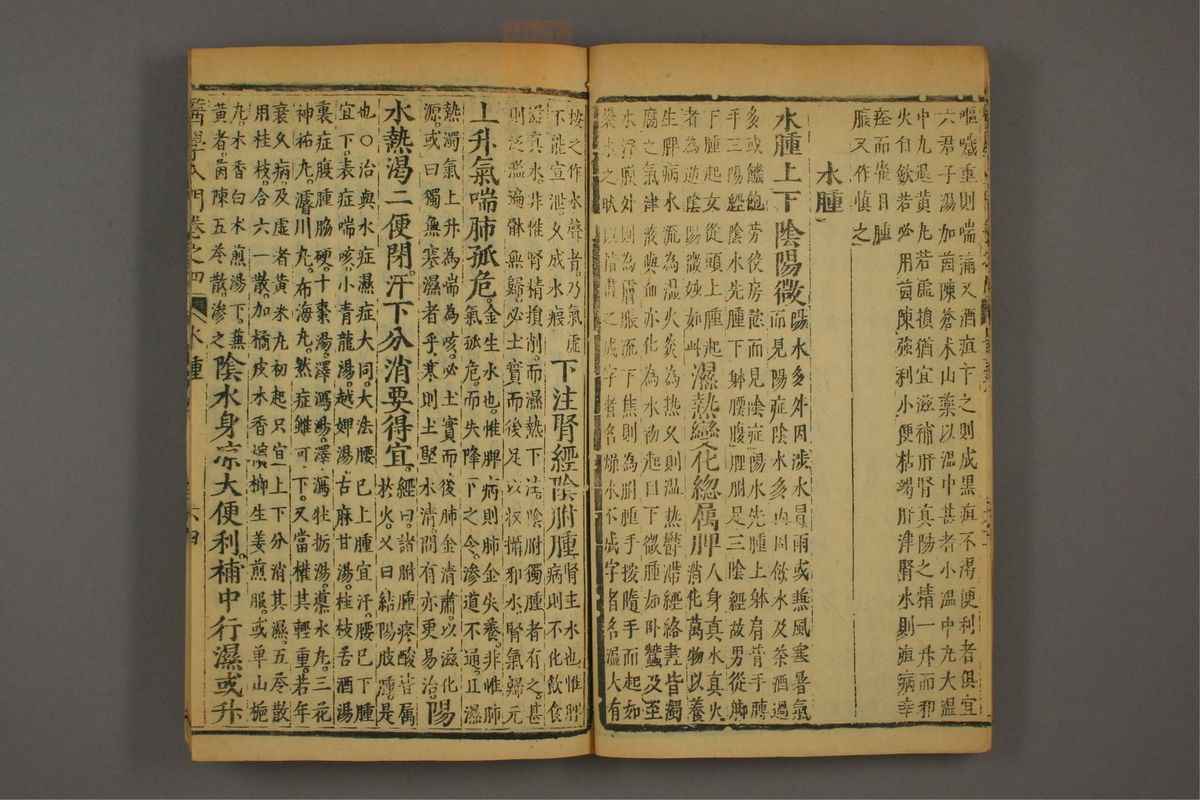 嘔噦重則喘滿又酒疸下之則成黑疸不渴便利者俱宜
六君子湯加茵陳蒼朮山藥以溫中甚者小溫中丸大溫
中丸退黃丸若虛損猶宜滋補肝腎真陽之精一升而邪
火自歛若必用茵陳強利小便枯竭肝津腎水則疸病幸
痊而雀目腫
脹又作慎之
水腫
水腫上下陰陽微
陽水多外因涉水冒雨或兼風寒暑氣
而見陽症陰水多內因飲水及茶酒過
多或饑飽勞役房慾而見陰症陽水先腫上躰肩背手膊
手三陽經陰水先腫下躰腰腹脛胕足三陰經故男從脚
下腫起女從頭上腫起
者為逆陰陽微妙如此
濕熱變化總属脾
人身真水真火
消化萬物以養
生脾病水流為濕火炎為热久則湿热鬱滯經絡盡皆濁
腐之氣津液與血亦化為水初起目下微腫如卧蠶及至
水浮膜外則為膚脹流下焦則為胕腫手按隨手而起如
裹水之狀以指畫之成字者名燥水不成字者名濕大有
按之作水聲者乃氣虛
不能宣泄久成水瘕
下注腎經陰胕腫
腎主水也惟脾
病則不化飲食
滋真水非惟腎情損削而濕熱下注陰胕獨腫者有之甚
則泛濫遍躰無歸必土實而後足以収攝邪水腎氣歸元
上升氣喘肺孤危
金生水也惟脾病則肺金失養非惟肺
氣孤危而失降下之令滲道不通且濕
熱濁氣上升為喘為咳必土實而後肺金清肅以滋化
源或曰獨無寒濕者乎寒則土堅水清間有亦更易治
陽
水熱渴二便閉汗下分消要得宜
經曰諸胕腫疼酸皆属
於火又曰結陽肢腫是
也○治與水症濕症大同大法腰巳上腫宜汗腰巳下腫
宜下表症喘咳小青龍湯越婢湯古麻甘湯桂枝苦酒湯
裏症腹腫脇硬十棗湯澤瀉湯澤瀉牡蠣湯藥水丸三花
神祐丸濬川丸布海丸然症雖可下又當權其輕重若年
衰久病及虛者黃米丸初起只宜上下分消其濕五苓散
用桂枝合六一散加橘皮木香檳榔生姜煎服或单山梔
丸木香白朮煎湯下蒸
黃者茵陳五苓散滲之
陰水身凉大便利補中行濕或升
醫學入門卷之四
水腫
六四